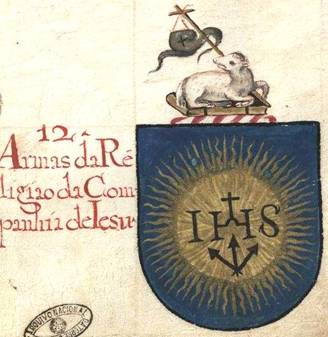 12ª
Armas da Re
ligiao da Com
panhia de Iesu
IHS
ARQUIVO NACIONAL